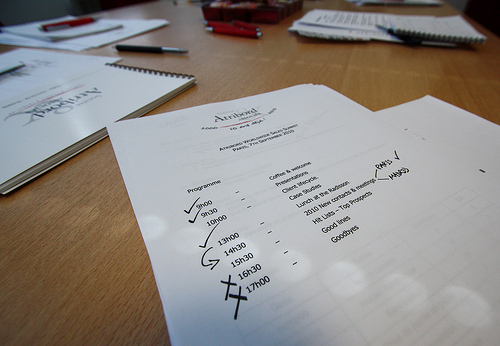 Atribord
ATRIBORD WORLDWIDE SALES SUMMIT
PARIS, 7TH SEPTEMBER 2010
Programme
9h00 - Coffee & welcome
9h30 - Presentations
10h00 - Client lifecycle,
Case Studies
13h00 - Lunch at the Radisson
14h30 - 2010 New contacts & meetings
15h30 - Hit Lists - Top Prospects
16h30 - Good lines
17h00 - Goodbyes
Atribord